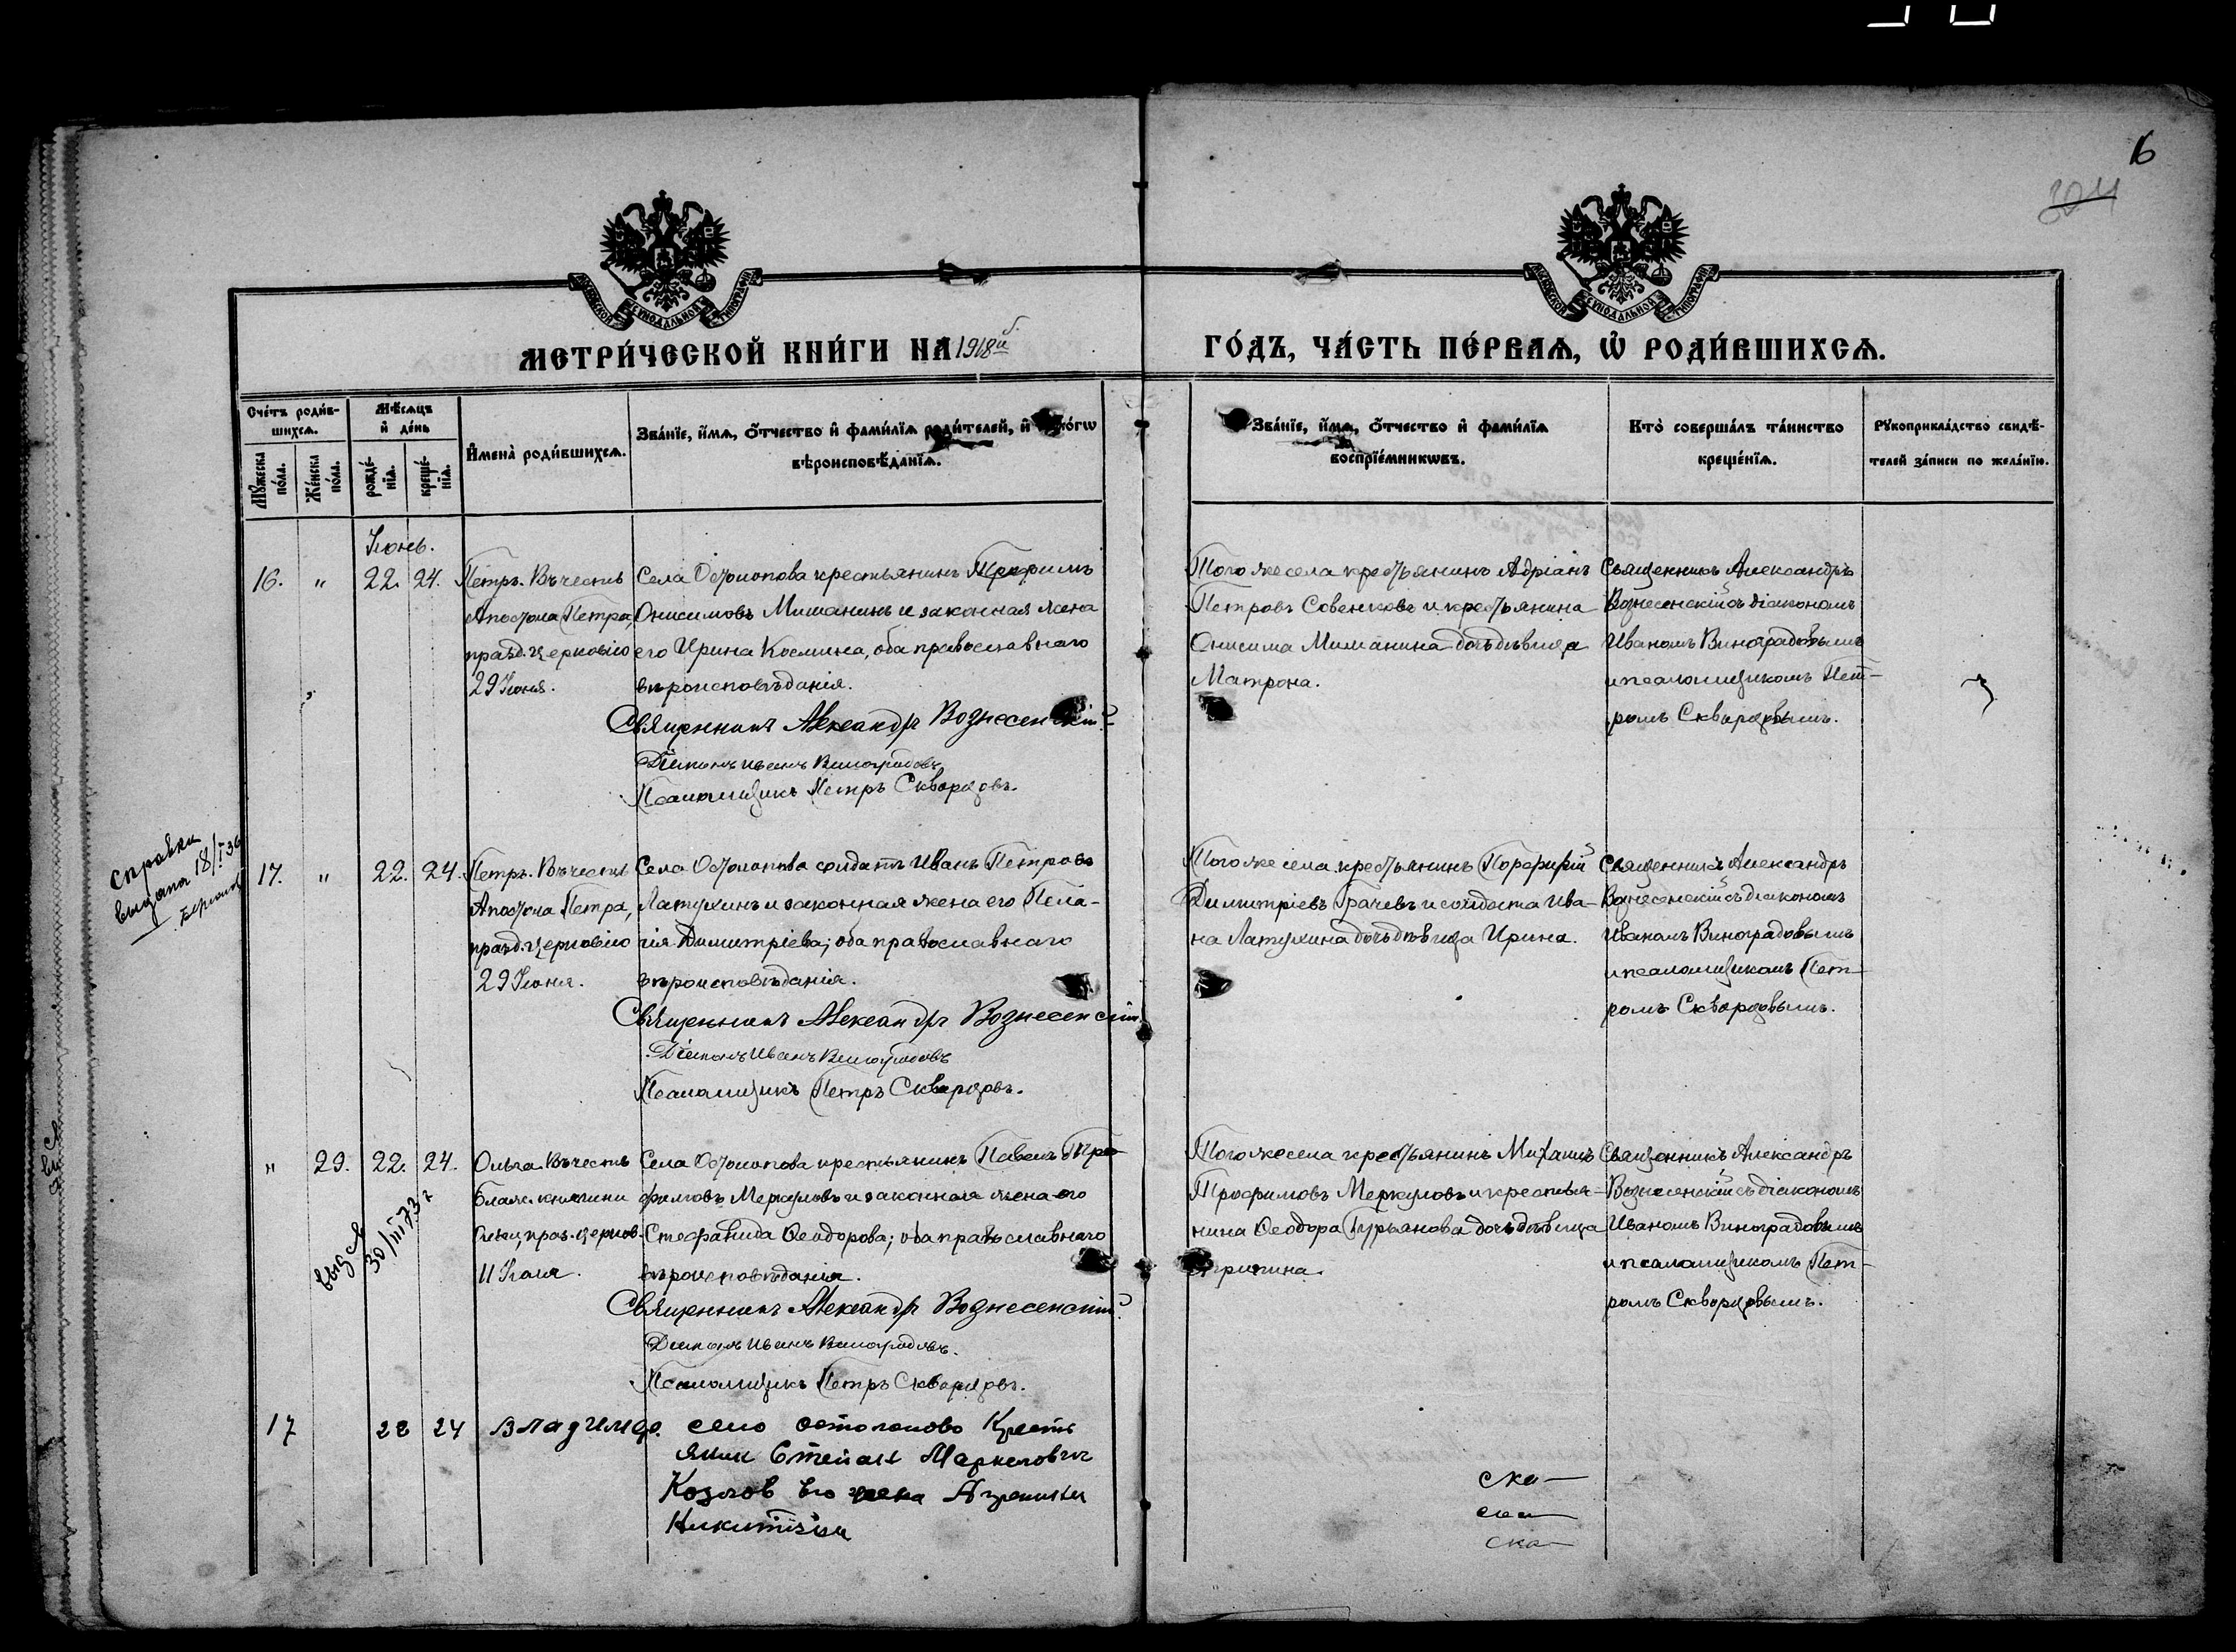 16
324
МОСКОВСКОЙ СѴНОДАЛЬНОЙ ТИПОГРАФІИ
МОСКОВСКОЙ СѴНОДАЛЬНОЙ ТИПОГРАФІИ
МЕТРИ́ЧЕСКОЙ КНИ́ГИ НА 1918й.
ГО́ДЪ, ЧА́СТЬ ПЕ́РВАѦ, Ѡ РОДИ́ВШИХСѦ.
Сче́тъ роди́в-
шихсѧ.
Мѣ́сѧцъ
и де́нь
Мꙋ́жеска по́ла.
Же́нска по́ла.
рожде́-
нїѧ.
креще́-
нїѧ.
Имена̀ роди́вшихсѧ.
Зва́нїе, и́мѧ, ѻ҆́тчество и фами́лїѧ роди́телей, и
вѣроисповѣ́данїѧ.
Зва́нїе, и́мѧ, ѻ҆́тчество и фами́лїѧ
воспрїе́мникѡвъ.
Кто̀ соверша́лъ та́инство
креще́нїѧ.
Рꙋкоприкла́дство свидѣ́-
телей за́писи по жела́нїю.
Іюнь.
16. " 22. 24.
Петръ. Въ честь
Апостола Петра,
празд. церковію
29 Іюня.
Села Остолопова крестьянинъ Трофимъ
Онисимовъ Мишанинъ и законная жена
его Ирина Космина, оба православнаго
вѣроисповѣданія.
Священникъ Александръ Вознесенскій
Діаконъ Иванъ Виноградовъ
Псаломщикъ Петръ Скворцовъ.
Того же села крестьянинъ Адріанъ
Петровъ Совенковъ и крестьянина
Онисима Мишанина дочь дѣвица
Матрона.
Священникъ Александръ
Вознесенскій съ діакономъ
Иваномъ Виноградовымъ
и псаломщикомъ Пет-
ромъ Скворцовымъ.
Справка
выдана 18/I 36
17. " 22. 24.
Петръ. Въ честь
Апостола Петра,
празд. церковію
29 Іюня.
Села Остолопова солдатъ Иванъ Петровъ
Латухинъ и законная жена его Пела-
гія Димитріева; оба православнаго
вѣроисповѣданія.
Священникъ Александръ Вознесенскій.
Діаконъ Иванъ Виноградовъ
Псаломщикъ Петръ Скворцовъ.
Того же села крестьянинъ Порфирій
Димитріевъ Грачевъ и солдата Ива-
на Латухина дочь дѣвица Ирина.
Священникъ Александръ
Вознесенскій съ діакономъ
Иваномъ Виноградовымъ
и псаломщикомъ Пет-
ромъ Скворцовымъ.
" 29. 22. 24.
30/III 73 г
Ольга. Въ честь
Благ. княгини
Ольги, праз. церков.
11 Іюля.
Села Остолопова крестьянинъ Павелъ Тро-
фимовъ Меркуловъ и законная жена его
Стефанида Ѳеодорова; оба православнаго
вѣроисповѣданія.
Священникъ Александръ Вознесенскій
Діаконъ Иванъ Виноградовъ.
Псаломщикъ Петръ Скворцовъ.
Того же села крестьянинъ Михаилъ
Трофимовъ Меркуловъ и крестья-
нина Ѳеодора Гурьянова дочь дѣвица
Агрипина.
Священникъ Александръ
Вознесенскій съ діакономъ
Иваномъ Виноградовымъ
и псаломщикомъ Пет-
ромъ Скворцовымъ.
17 22 24
Владимир.
село остолопово Кресть
янин Степан Маркелович
Козлов его жена
ска-
ска-